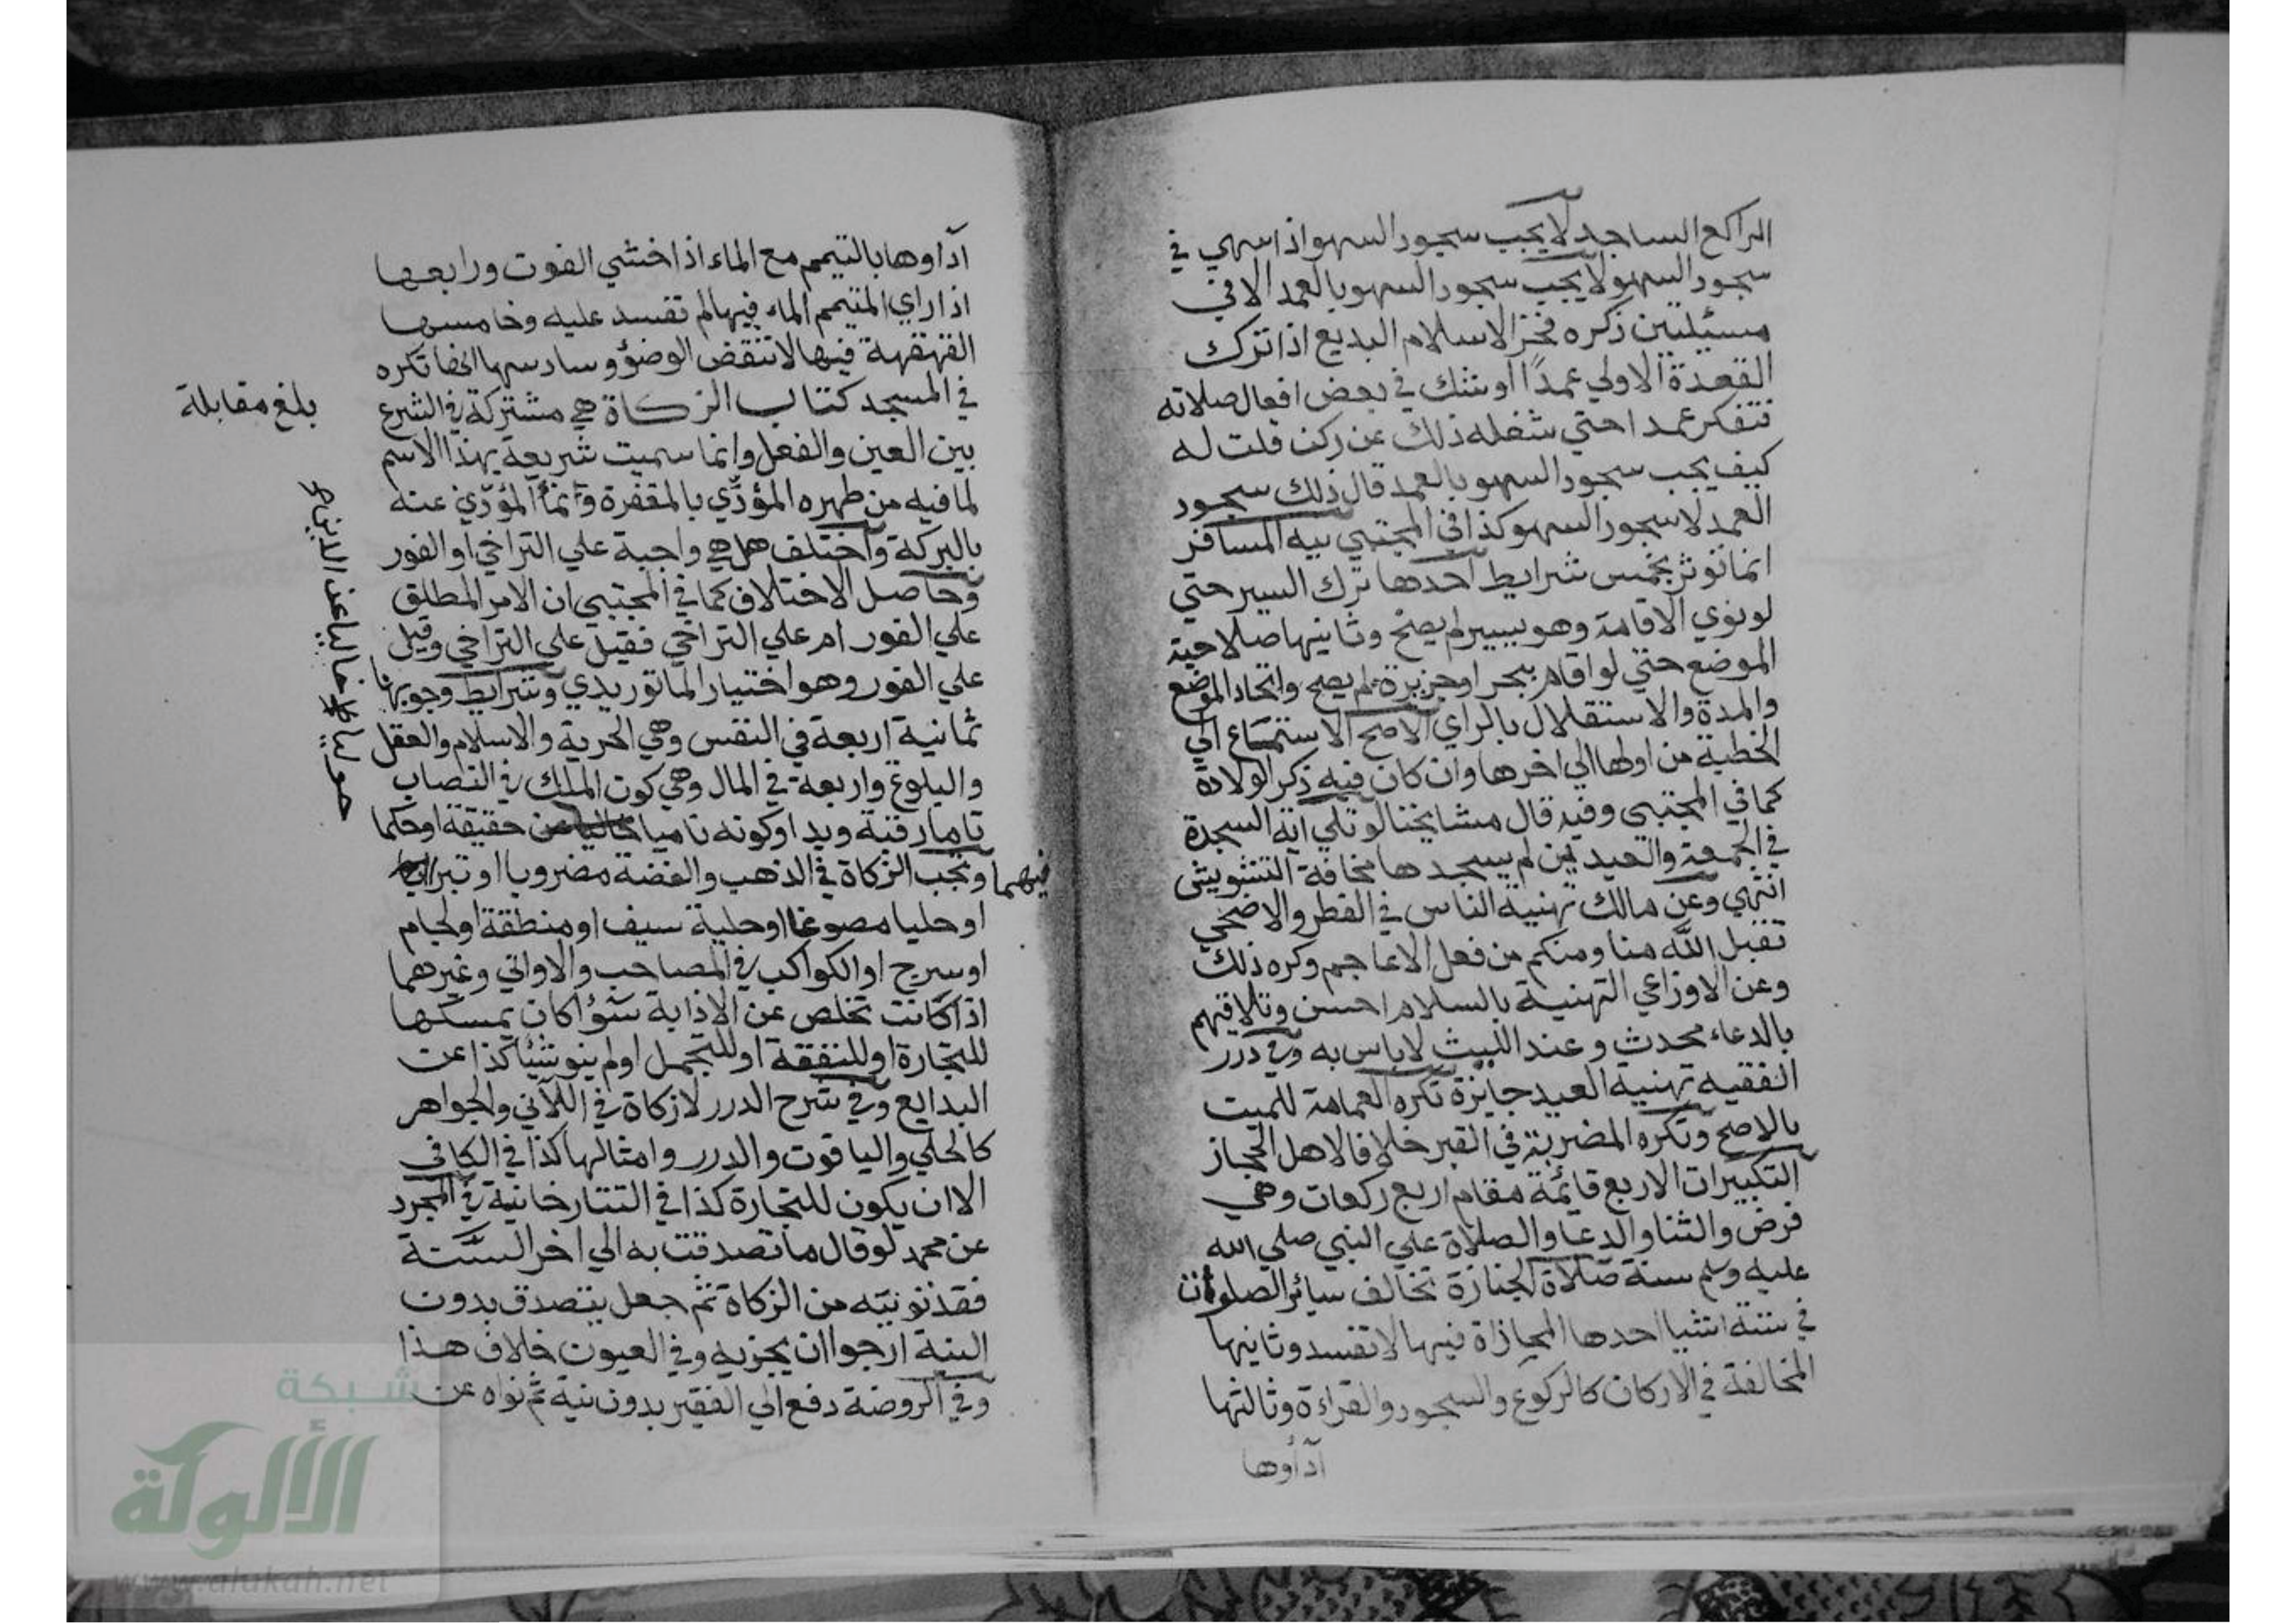 الراكع الساجد لا يجب سجود السهو اذا سهي في
سجود السهو لا يجب سجود السهو بالعمد الا في
مسيلتين ذكره فخر الاسلام البديع اذا ترك
القعدة الاولي عمدًا او شك في بعض افعال صلاته
فتفكر عمدا حتي شغله ذلك عن ركن قلت له
كيف يجب سجود السهو بالعمد قال ذلك سجود
العمد لا سجود السهو كذا في المجتبي نيه المسافر
انما توثر بخمس شرايط احدها ترك السير حتي
لو نوي الاقامة وهو يسير لم يصح وثانيها صلاحية
الموضع حتي لو اقام ببحر او جزيرة لم يصح واتحاد الموضع
والمدة والاستقلال بالراي الاصح الاستماع الي
الخطبة من اولها الي اخرها وان كان فيه ذكر الولادة
كما في المجتبي وفيه قال مشايخنا لو تلي اية السجدة
في الجمعة والعيدين لم يسجدها مخافة التشويش
انتهي وعن مالك تهنية الناس في الفطر والاضحي
تقبل الله منا ومنكم من فعل الاعاجم وكره ذلك
وعن الاوزاعي التهنية بالسلام احسن وتلاقيهم
بالدعاء محدث وعند الليث لا باس به وفي درر
الفقيه تهنية العيد جايزة تكره العمامة للميت
بالاصح وتكره المضربة في القبر خلافا لاهل الحجاز
التكبيرات الاربع قائمة مقام اربع ركعات وهي
فرض والثنا والدعا والصلاة علي النبي صلي الله
عليه وسلم سنة صلاة الجنازة تخالف سائر الصلوات
في ستة اشيا احدها المحاذاة فيها لا تفسد وثانيها
المخالفة في الاركان كالركوع والسجود والقراءة وثالثها
آدأوها
آداوها بالتيمم مع الماء اذا خشي الفوت ورابعها
اذا راي المتيمم الماء فيها لم تفسد عليه وخامسها
القهقهة فيها لا تنقض الوضؤ وسادسها انها تكره
في المسجد كتاب الزكاة هي مشتركة في الشرع
بين العين والفعل وانما سميت شريعة بهذا الاسم
لما فيه من طهره المؤدّي بالمغفرة وانمآ المؤدّي عنه
بالبركة واختلف هل هي واجبة علي التراخي او الفور
وحاصل الاختلاف كما في المجتبي ان الامر المطلق
علي الفور ام علي التراخي فقيل علي التراخي وقيل
علي الفور وهو اختيار الماتوريدي وشرايط وجوبها
ثمانية اربعة في النفس وهي الحرية والاسلام والعقل
والبلوغ واربعة في المال وهي كون الملك في النصاب
تاما رقبة ويدا وكونه ناميا حقيقة او حكما
فيهما وتجب الزكاة في الذهب والفضة مضروبا او تبرا
او حليا مصوغا او حلية سيف او منطقة او لجام
او سرج او الكواكب في المصاحب والاواني وغيرهما
اذا كانت تخلص عن الاذابة سؤا كان يمسكها
للتجارة او للنفقة او للتجمل او لم ينو شيأ كذا عن
البدايع وفي شرح الدرر لا زكاة في اللآلي والجواهر
كالحلي والياقوت والدرر وامثالها كذا في الكافي
الا ان يكون للتجارة كذا في التتارخانية في المجرد
عن محمد لو قال ما تصدقت به الي اخر السّنة
فقد نويته من الزكاة ثم جعل يتصدق بدون
النية ارجوا ان يجزيه وفي العيون خلاف هذا
وفي الروضة دفع الي الفقير بدون نية ثم نواه عن
بلغ مقابلة
خاليا عن الدين
شبكة
الألوكة
www.alukah.net